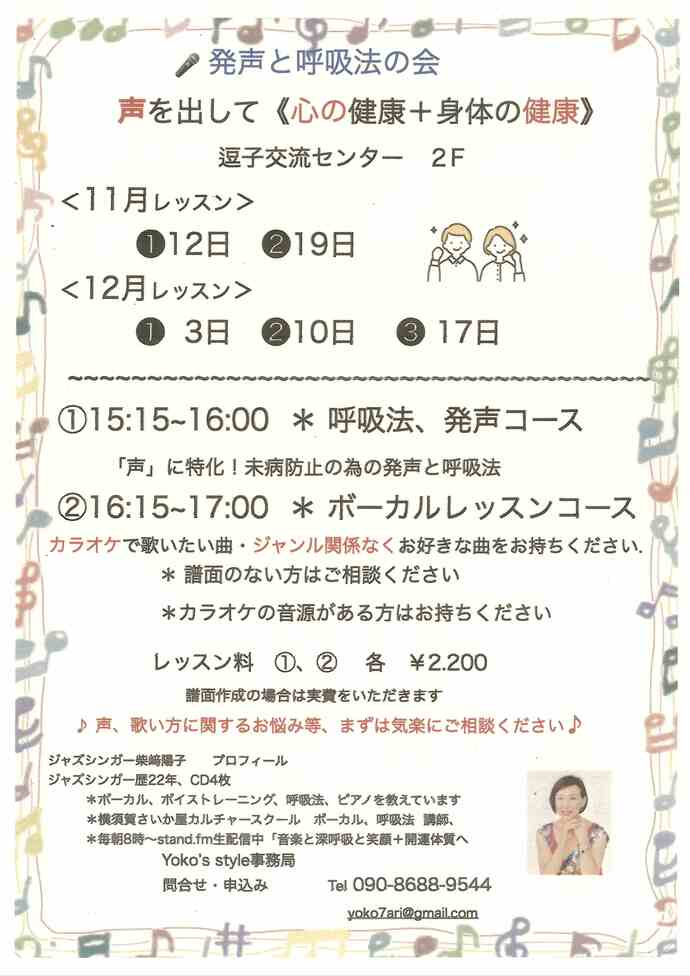 発声と呼吸法の会
声を出して《心の健康＋身体の健康》
逗子交流センター　2F
＜11月レッスン＞
❶12日　❷19日
＜12月レッスン＞
❶ 3日　❷10日　❸ 17日
~~~~~~~~~~~~~~~~~~~~~~~~~~~~~~~~~~~~~~~~
①15:15~16:00 ＊ 呼吸法、発声コース
「声」に特化！未病防止の為の発声と呼吸法
②16:15~17:00 ＊ ボーカルレッスンコース
カラオケで歌いたい曲・ジャンル関係なくお好きな曲をお持ちください.
＊ 譜面のない方はご相談ください
＊カラオケの音源がある方はお持ちください
レッスン料　①、②　各　￥2.200
譜面作成の場合は実費をいただきます
♪ 声、歌い方に関するお悩み等、まずは気楽にご相談ください♪
ジャズシンガー柴﨑陽子　　プロフィール
ジャズシンガー歴22年、CD4枚
＊ボーカル、ボイストレーニング、呼吸法、ピアノを教えています
＊横須賀さいか屋カルチャースクール　ボーカル、呼吸法 講師、
＊毎朝8時〜stand.fm生配信中「音楽と深呼吸と笑顔＋開運体質へ
Yoko's style事務局
問合せ・申込み　　　Tel 090-8688-9544
yoko7ari@gmail.com